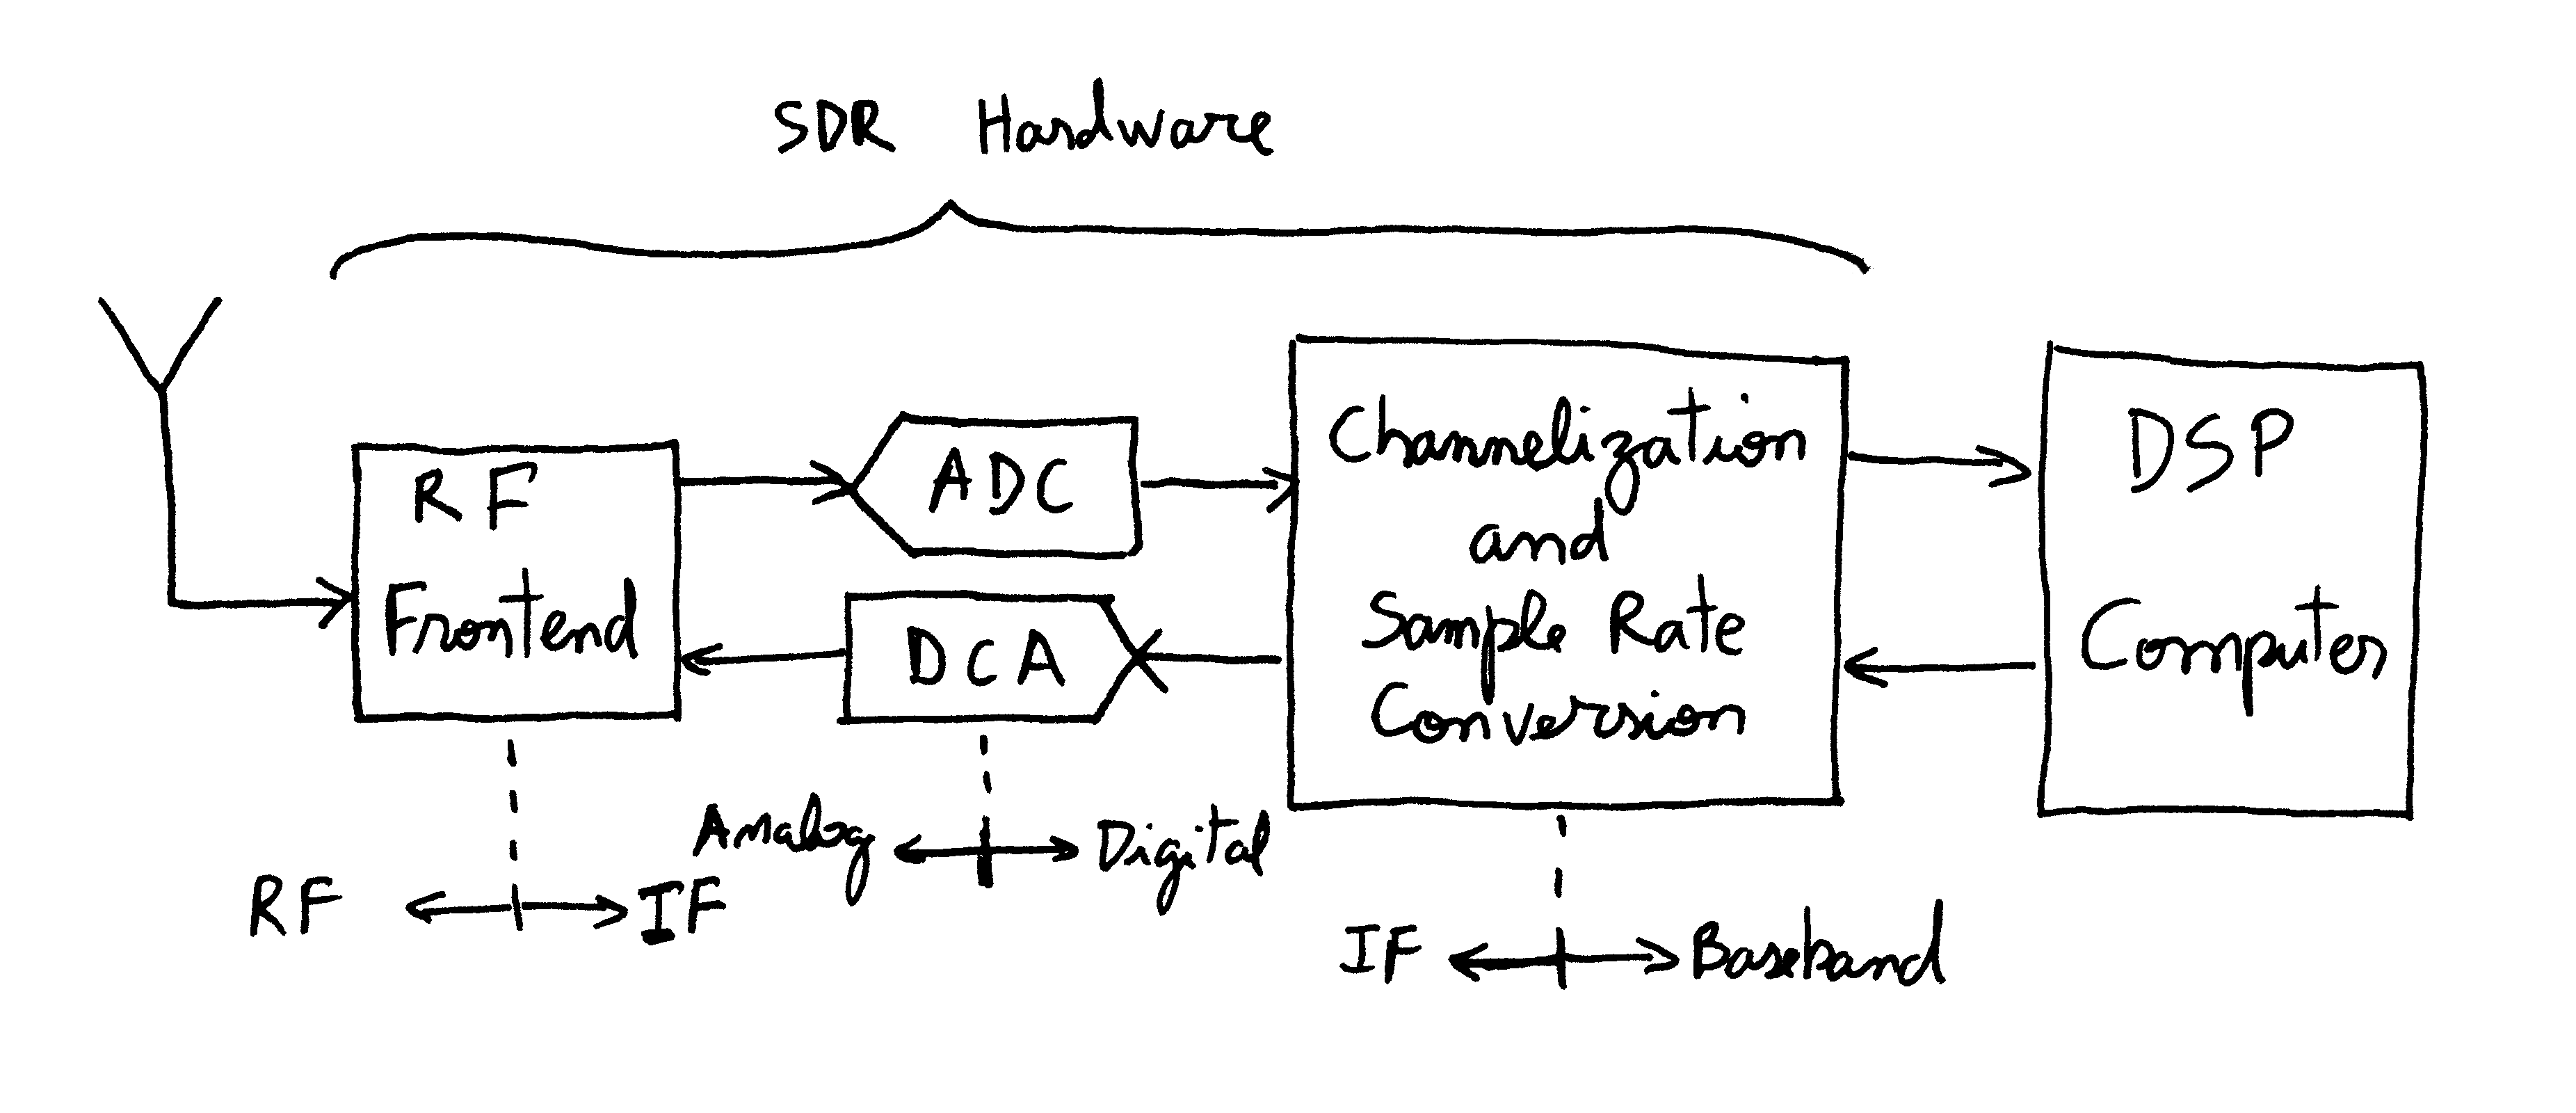 SDR Hardware
RF
Frontend
ADC
DCA
Channelization
and
Sample Rate
Conversion
DSP
Computer
RF
IF
Analog
Digital
IF
Baseband